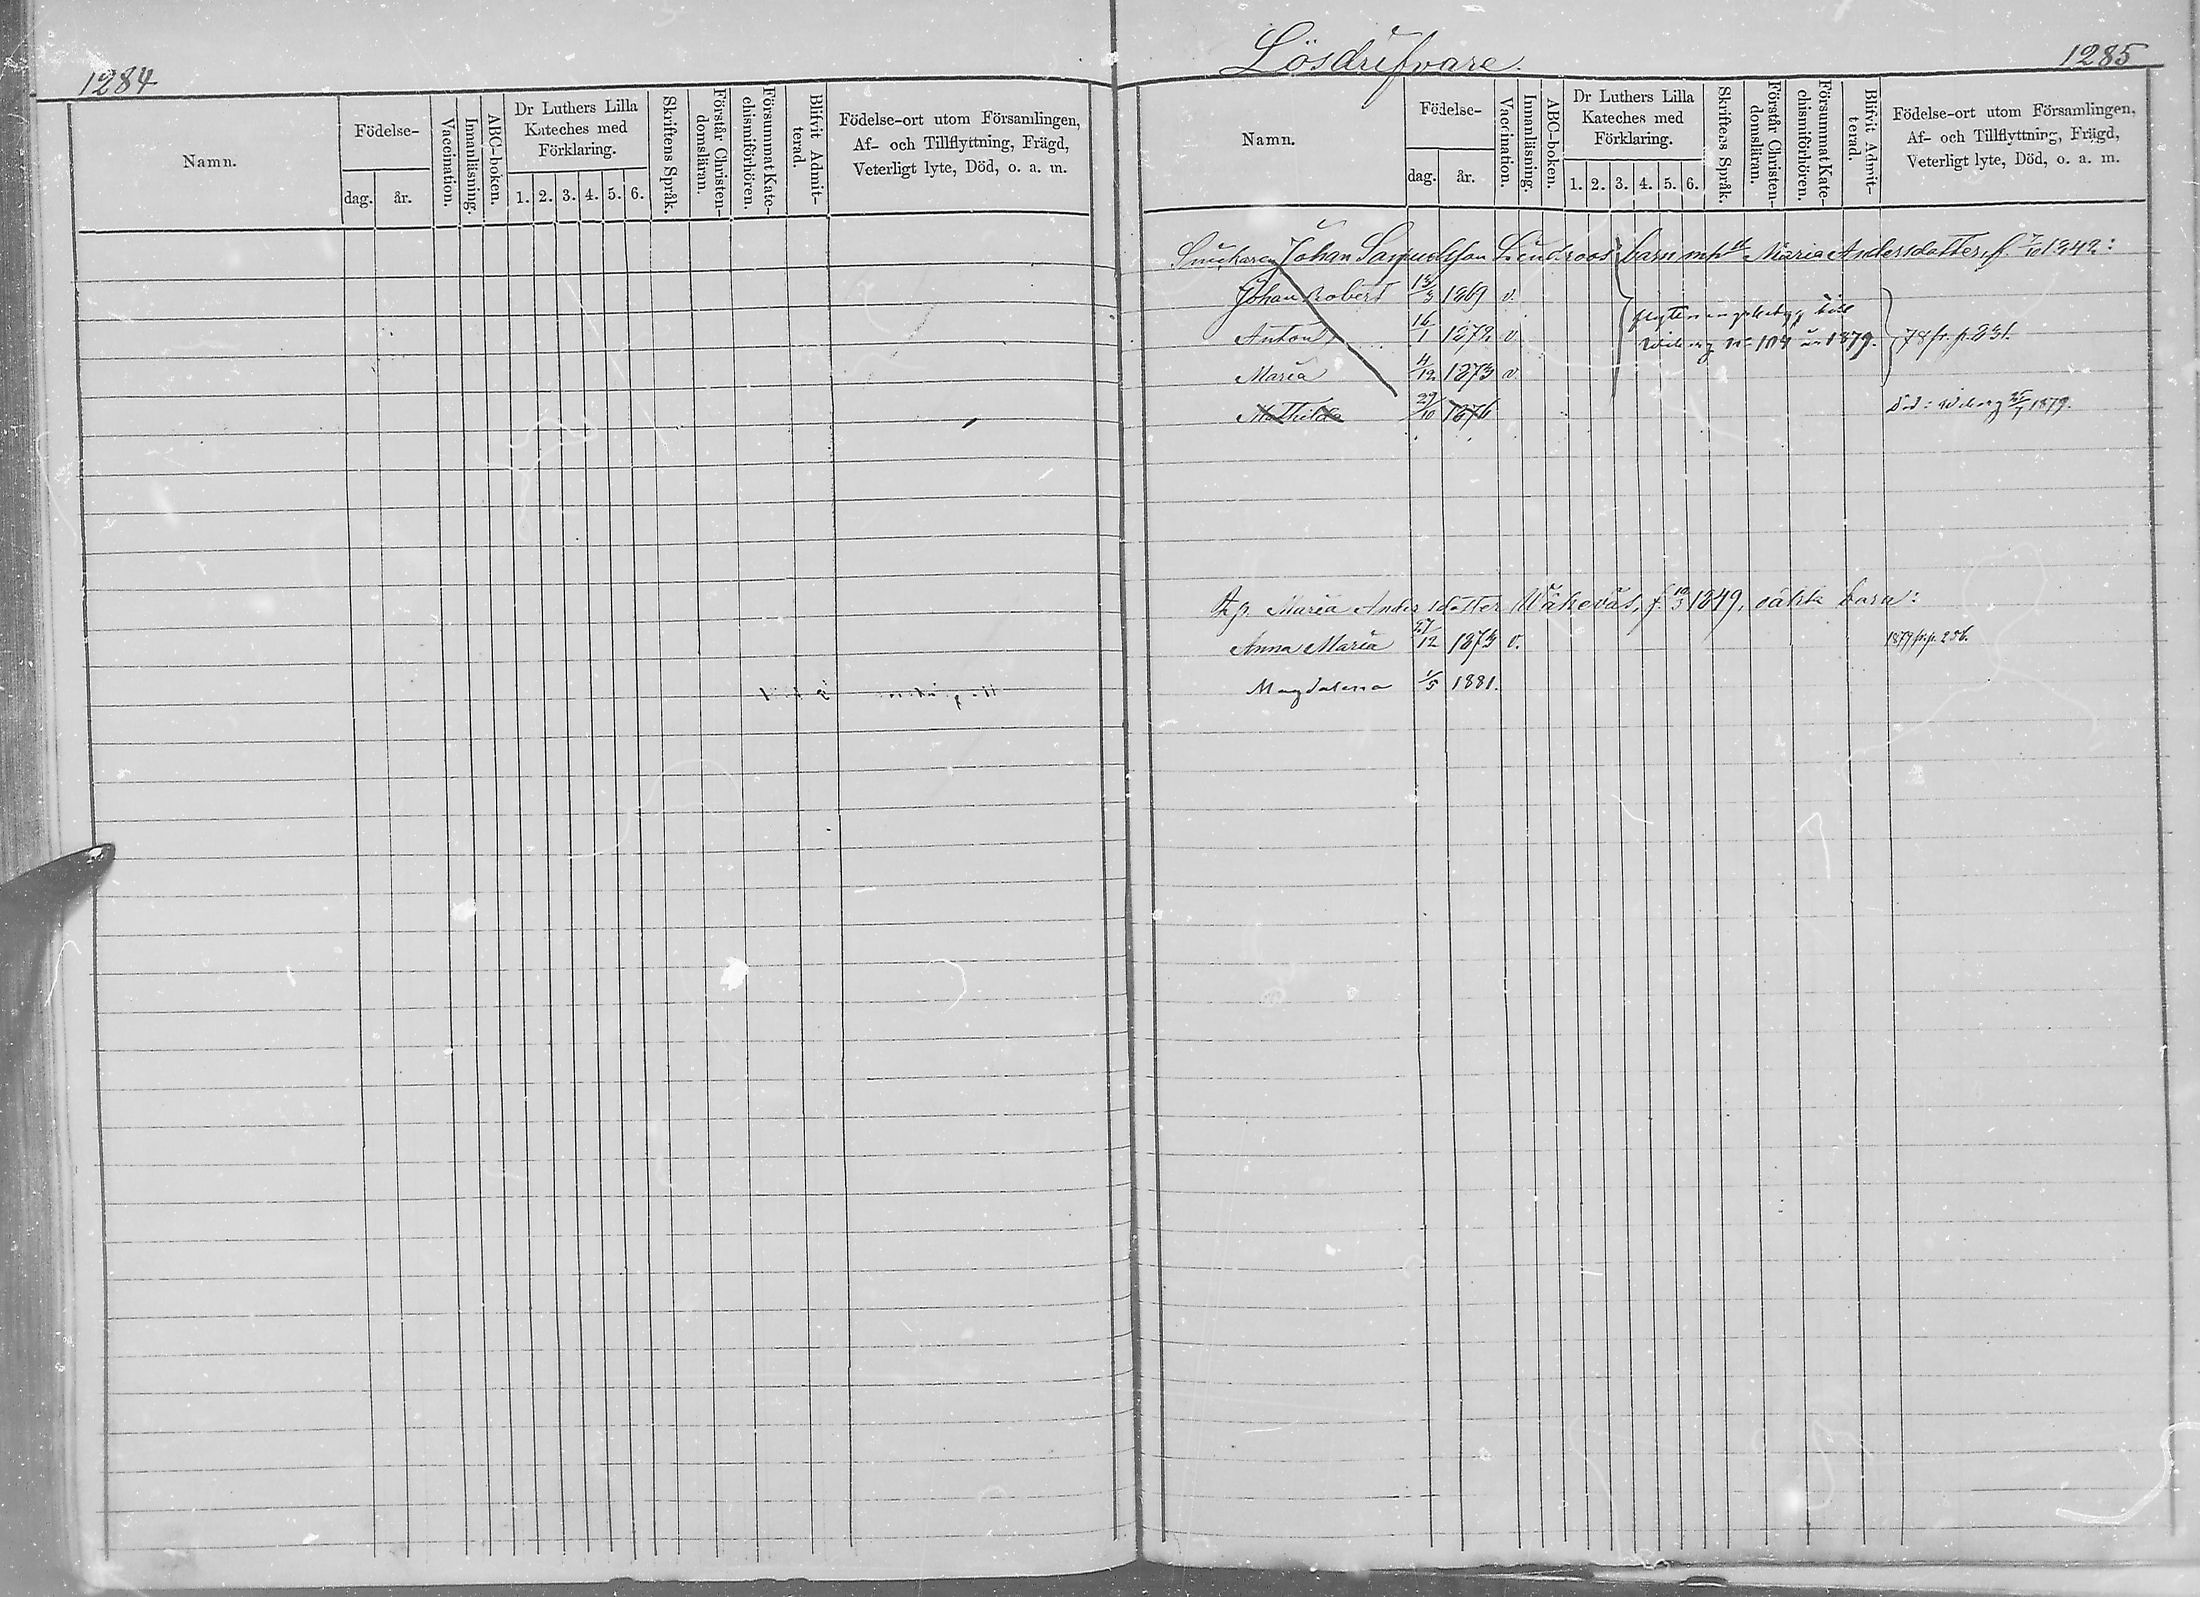 1284
Namn.
Födelse-
dag.
år.
Vaccination.
Innanläsning.
ABC-boken.
Dr Luthers Lilla
Kateches med
Förklaring.
1. 2. 3. 4. 5. 6.
Skriftens Språk.
Förstår Christen-
domsläran.
Försummat Kate-
chismiförhören.
Blifvit Admit-
terad.
Födelse-ort utom Församlingen,
Af- och Tillflyttning, Frägd,
Veterligt lyte, Död, o. a. m.
Lösdrifvare.
1285
Namn.
Födelse-
dag.
år.
Vaccination.
Innanläsning.
ABC-boken.
Dr Luthers Lilla
Kateches med
Förklaring.
1. 2. 3. 4. 5. 6.
Skriftens Språk.
Förstår Christen-
domsläran.
Försummat Kate-
chismiförhören.
Blifvit Admit-
terad.
Födelse-ort utom Församlingen,
Af- och Tillflyttning, Frägd,
Veterligt lyte, Död, o. a. m.
Snickaren Johan Samuelsson Lindroos barn Maria Andersdotter, f. 7/10 1842:
Johan Robert 13/3 1869 v.
Anton 16/1 1872 v. 1879. 78 fr. p. 231.
Maria 4/12 1873 v.
Mathilda 29/10 1876 Död i Wiborg 1879.
Maria Andersdotter f. 10/3 1849, oäkta barn:
Anna Maria 27/12 1873 v. 1879 fr. p. 256.
Magdalena 1/5 1881.